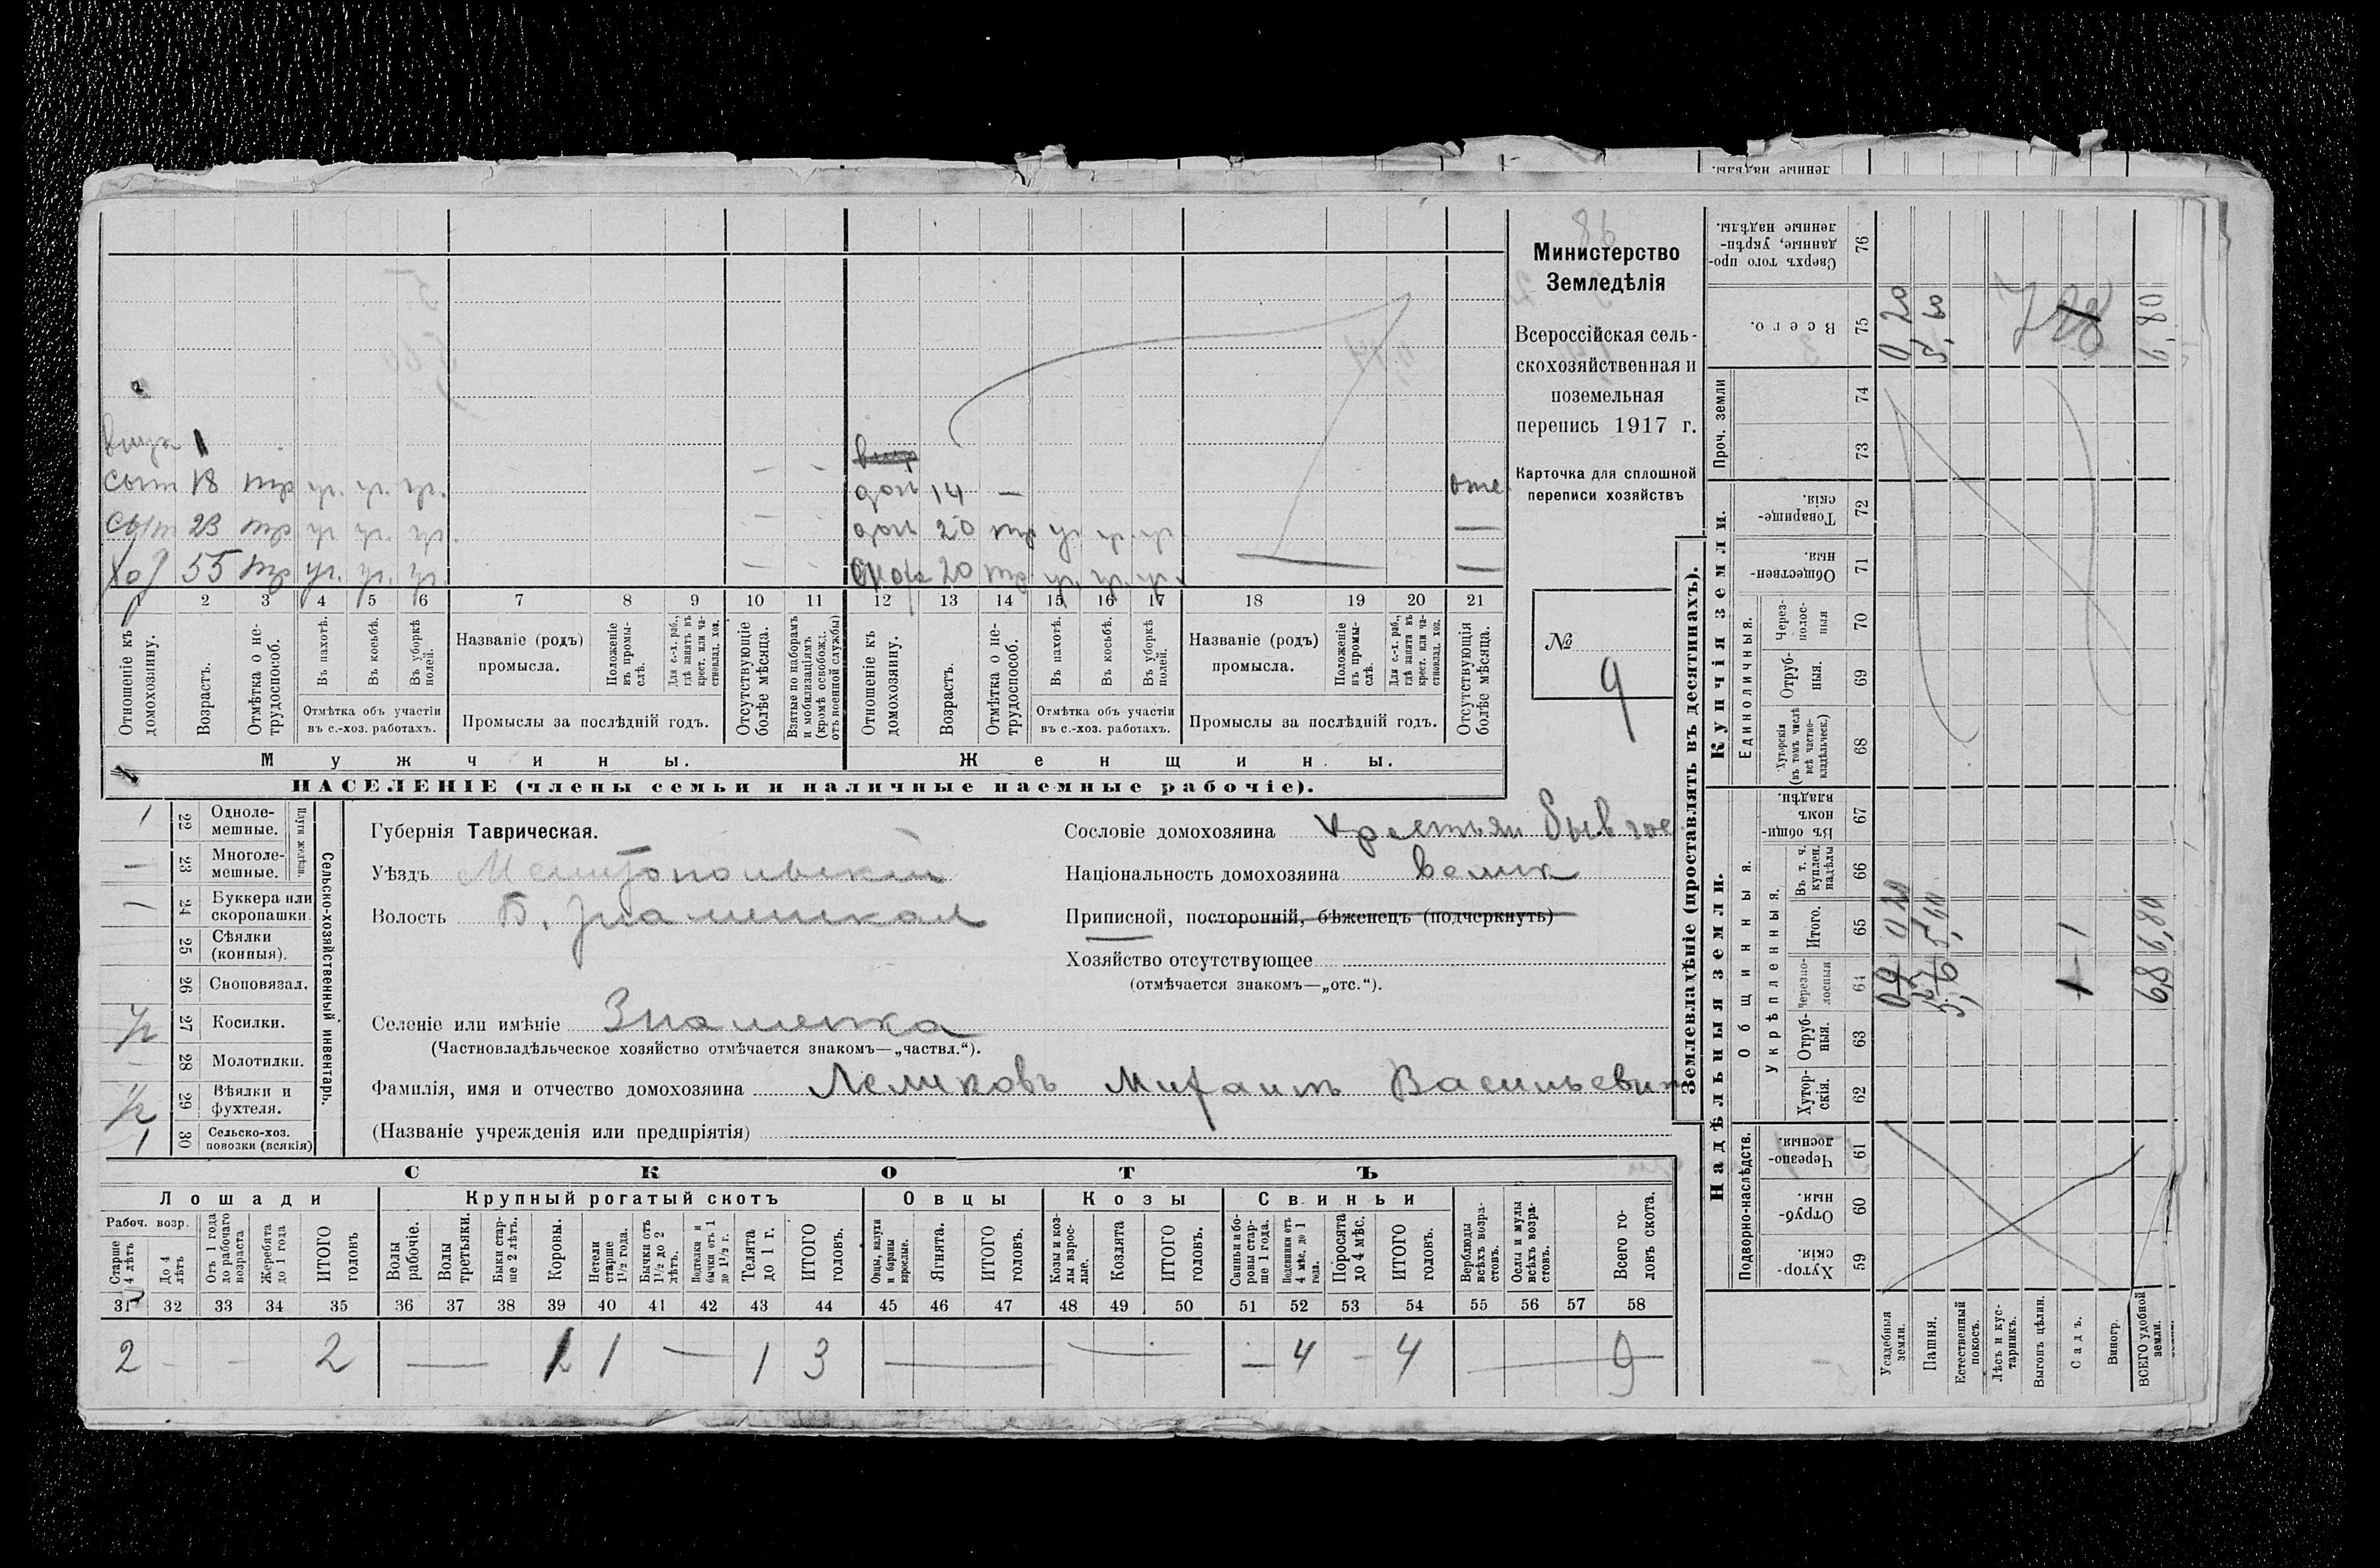 Министерство
Земледѣлія
Всероссійская сель-
скохозяйственная и
поземельная
перепись 1917 г.
Карточка для сплошной
переписи хозяйствъ
№
9
внук 1
сын 18 тр
сын 23 тр
Хоз 55 тр
доч 14 — отс
доч 20 тр —
сноха 20 тр —
1 2 3 4 5 6 7 8 9 10 11 12 13 14 15 16 17 18 19 20 21
Отношеніе къ домохозяину.
Возрастъ.
Отмѣтка о не-трудоспособ.
Въ пахотѣ.
Въ косьбѣ.
Въ уборкѣ полей.
Отмѣтка объ участіи
въ с.-хоз. работахъ.
Названіе (родъ)
промысла.
Положеніе въ промы-слѣ.
Для с.-х. раб., гдѣ занятъ въ крест. или ча-стновлад. хоз.
Промыслы за послѣдній годъ.
Отсутствующіе болѣе мѣсяца.
Взятые по наборамъ и мобилизаціямъ (кромѣ освобожд. отъ военной службы)
Отношеніе къ домохозяину.
Возрастъ.
Отмѣтка о не-трудоспособ.
Въ пахотѣ.
Въ косьбѣ.
Въ уборкѣ полей.
Отмѣтка объ участіи
въ с.-хоз. работахъ.
Названіе (родъ)
промысла.
Положеніе въ промы-слѣ.
Для с.-х. раб., гдѣ занята въ крест. или ча-стновлад. хоз.
Промыслы за послѣдній годъ.
Отсутствующія болѣе мѣсяца.
Мужчины.
Женщины.
НАСЕЛЕНІЕ (члены семьи и наличные наемные рабочіе).
Сельско-хозяйственный инвентарь.
Плуги желѣзн.
1 22 Одноле-мешные.
— 23 Многоле-мешные.
— 24 Буккера или скоропашки.
25 Сѣялки (конныя).
26 Сноповязал.
1/2 27 Косилки.
— 28 Молотилки.
1/2 29 Вѣялки и фухтеля.
1 30 Сельско-хоз. повозки (всякія)
Губернія Таврическая.
Уѣздъ Мелитопольскій
Волость Б. Знаменская
Селеніе или имѣніе Знаменка
(Частновладѣльческое хозяйство отмѣчается знакомъ—„частвл.“).
Фамилія, имя и отчество домохозяина Лемиковъ Михаилъ Васильевич
(Названіе учрежденія или предпріятія)
Сословіе домохозяина крестьян бывгос
Національность домохозяина велик
Приписной, посторонній, бѣженецъ (подчеркнуть)
Хозяйство отсутствующее
(отмѣчается знакомъ—„отс.“).
СКОТЪ
Лошади
Крупный рогатый скотъ
Овцы
Козы
Свиньи
Рабоч. возр.
Старше 4 лѣтъ
До 4 лѣтъ
Отъ 1 года до рабочаго возраста
Жеребята до 1 года
ИТОГО головъ
Волы рабочіе.
Волы третьяки.
Быки стар-ше 2 лѣтъ.
Коровы.
Нетели старше 1½ года.
Бычки отъ 1½ до 2 лѣтъ.
Подтелки и бычки отъ 1 до 1½ г.
Телята до 1 г.
ИТОГО головъ.
Овцы, валухи и бараны взрослые.
Ягнята.
ИТОГО головъ.
Козы и коз-лы взрос-лые.
Козлята
ИТОГО головъ.
Свиньи и бо-ровы стар-ше 1 года.
Подсвинки отъ 4 мѣс. до 1 года.
Поросята до 4 мѣс.
ИТОГО головъ.
Верблюды всѣхъ возра-стовъ.
Ослы и мулы всѣхъ возра-стовъ.
Всего го-ловъ скота.
31 32 33 34 35 36 37 38 39 40 41 42 43 44 45 46 47 48 49 50 51 52 53 54 55 56 57 58
2 — — 2 — 1 1 — 1 3 — — — 4 — 4 — 9
Землевладѣніе (проставлять въ десятинахъ).
Надѣльныя земли.
Купчія земли.
Проч. земли
Подворно-наслѣдств.
Общинныя.
Укрѣпленныя.
Единоличныя.
Хутор-скія. 59
Отруб-ныя. 60
Черезпо-лосныя. 61
Хутор-скія. 62
Отруб-ныя. 63
Черезпо-лосныя 64
Итого. 65
Въ т. ч. куплен. надѣлы 66
Въ общи-нномъ владѣн. 67
Хуторскія (въ томъ числѣ всѣ частно-владѣльческ.) 68
Отруб-ныя. 69
Через-полос-ныя 70
Обществен-ныя. 71
Товарище-скія. 72
73
74
Всего. 75
Сверхъ того про-данные, укрѣп-ленные надѣлы. 76
Усадебныя земли.
Пашня.
Естественный покосъ.
Лѣсъ и кус-тарникъ.
Выгонъ цѣлин.
Садъ.
Виногр.
ВСЕГО удобной земли.